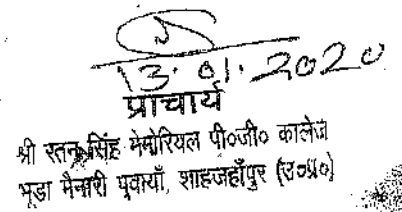 13.01.2020
प्राचार्य
श्री रतन सिंह मेमोरियल पी०जी० कालेज
भुडा मैनारी पुवायाँ, शाहजहाँपुर (उ०प्र०)